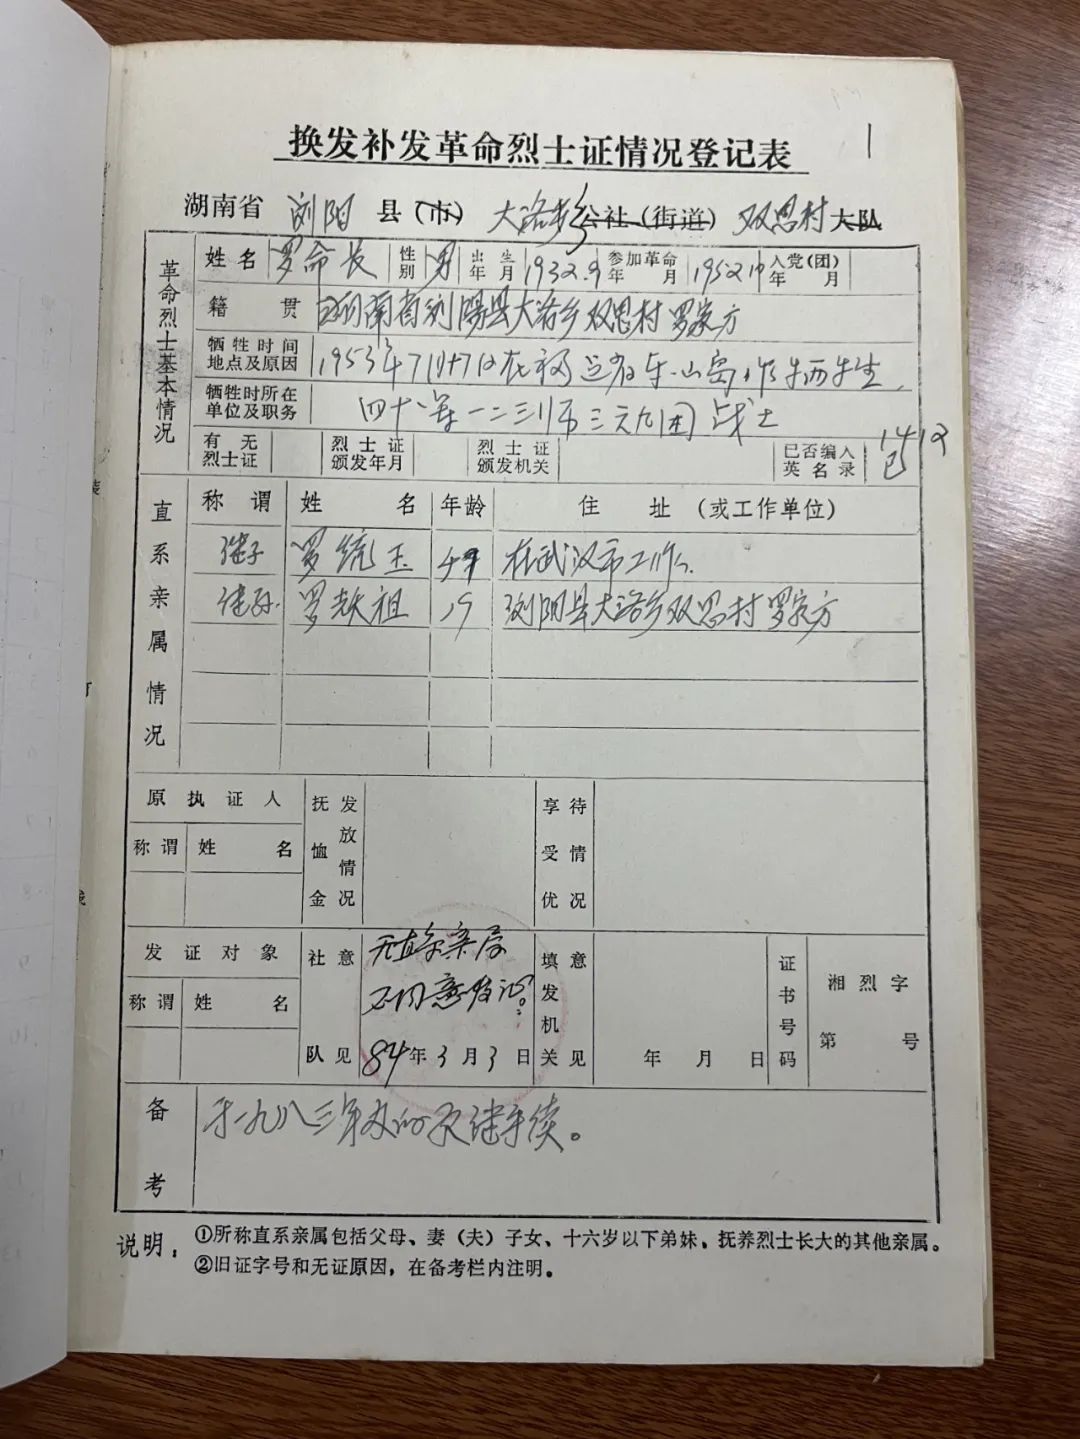 换发补发革命烈士证情况登记表
1
湖南省 浏阳 县(市) 大洛乡公社(街道) 双恩村大队
革命烈士基本情况
姓名 罗命长 性别 男 出生年月 1932.9 参加革命年月 1952.19 入党(团)年月
籍贯 湖南省浏阳县大洛乡双恩村罗家方
牺牲时间地点及原因 1953年7月17日在福建省东山岛 牺牲
牺牲时所在单位及职务 一二三师三六九团战士
有无烈士证 烈士证颁发年月 烈士证颁发机关 已否编入英名录 已
直系亲属情况
称谓 姓名 年龄 住址(或工作单位)
继子 罗统玉 在武汉市工作.
继孙. 罗 祖 19 浏阳县大洛乡双恩村罗家方
原执证人 抚恤金发放情况 享受优待情况
称谓 姓名
发证对象 社队意见 无直系亲属 填发机关意见 证书号码 湘烈字
称谓 姓名 不同意发证。 第 号
84年3月3日 年 月 日
备考 于一九八三年办的 继手续。
说明:①所称直系亲属包括父母、妻(夫)子女、十六岁以下弟妹,抚养烈士长大的其他亲属。
②旧证字号和无证原因,在备考栏内注明。